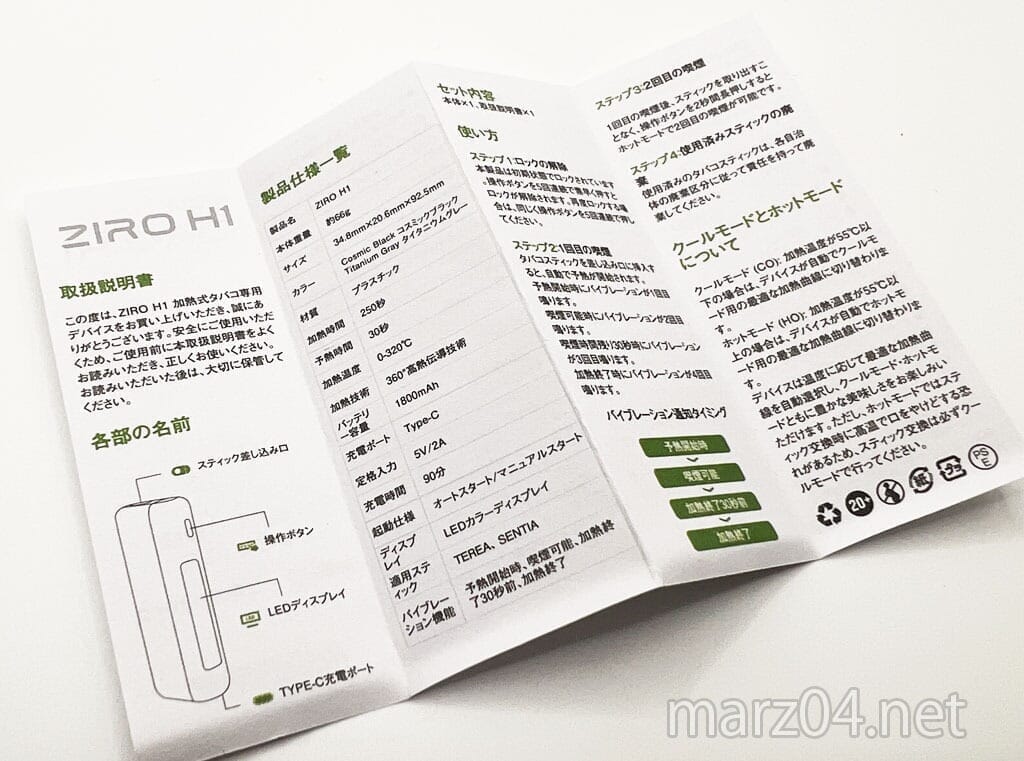 ZIRO H1
取扱説明書
この度は、ZIRO H1 加熱式タバコ専用
デバイスをお買い上げいただき、誠にあ
りがとうございます。安全にご使用いただ
くため、ご使用前に本取扱説明書をよく
お読みいただき、正しくお使いください。
お読みいただいた後は、大切に保管して
ください。
各部の名前
スティック差し込み口
操作ボタン
LEDディスプレイ
TYPE-C充電ポート
製品仕様一覧
製品名 ZIRO H1
本体重量 約66g
サイズ 34.8mm×20.6mm×92.5mm
カラー Cosmic Black コスミックブラック
Titanium Gray タイタニウムグレー
材質 プラスチック
加熱時間 250秒
予熱時間 30秒
加熱温度 0-320℃
加熱技術 360°加熱伝導技術
バッテリ
ー容量 1800mAh
充電ポート Type-C
定格入力 5V/2A
充電時間 90分
起動仕様 オートスタート/マニュアルスタート
ディスプ
レイ LEDカラーディスプレイ
適用ステ
ィック TEREA、SENTIA
バイブレー
ション機能 予熱開始時、喫煙可能、加熱終
了30秒前、加熱終了
セット内容
本体×1、取扱説明書×1
使い方
ステップ1:ロックの解除
本製品は初期状態でロックされています
。操作ボタンを5回連続で素早く押すと、
ロックが解除されます。再度ロックする場
合は、同じく操作ボタンを5回連続で押し
てください。
ステップ2:1回目の喫煙
タバコスティックを差し込み口に挿入す
ると、自動で予熱が開始されます。
予熱開始時にバイブレーションが1回
鳴ります。
喫煙可能時にバイブレーションが2回
鳴ります。
喫煙時間残り30秒時にバイブレーション
が3回目鳴ります。
加熱終了時にバイブレーションが4回目
鳴ります。
バイブレーション通知タイミング
予熱開始時
喫煙可能
加熱終了30秒前
加熱終了
ステップ3:2回目の喫煙
1回目の喫煙後、スティックを取り出すこ
となく、操作ボタンを2秒間長押しすると
ホットモードで2回目の喫煙が可能です。
ステップ4:使用済みスティックの廃
棄
使用済みのタバコスティックは、各自治
体の廃棄区分に従って責任を持って廃
棄してください。
クールモードとホットモード
について
クールモード (CO): 加熱温度が55℃以
下の場合は、デバイスが自動でクールモ
ード用の最適な加熱曲線に切り替わりま
す。
ホットモード (HO): 加熱温度が55℃以
上の場合は、デバイスが自動でホットモ
ード用の最適な加熱曲線に切り替わりま
す。
デバイスは温度に応じて最適な加熱曲
線を自動選択し、クールモード・ホットモ
ードともに豊かな美味しさをお楽しみい
ただけます。ただし、ホットモードではステ
ィック交換時に高温で口をやけどする恐
れがあるため、スティック交換は必ずクー
ルモードで行ってください。
20+
紙
プラ
PS
E
marz04.net